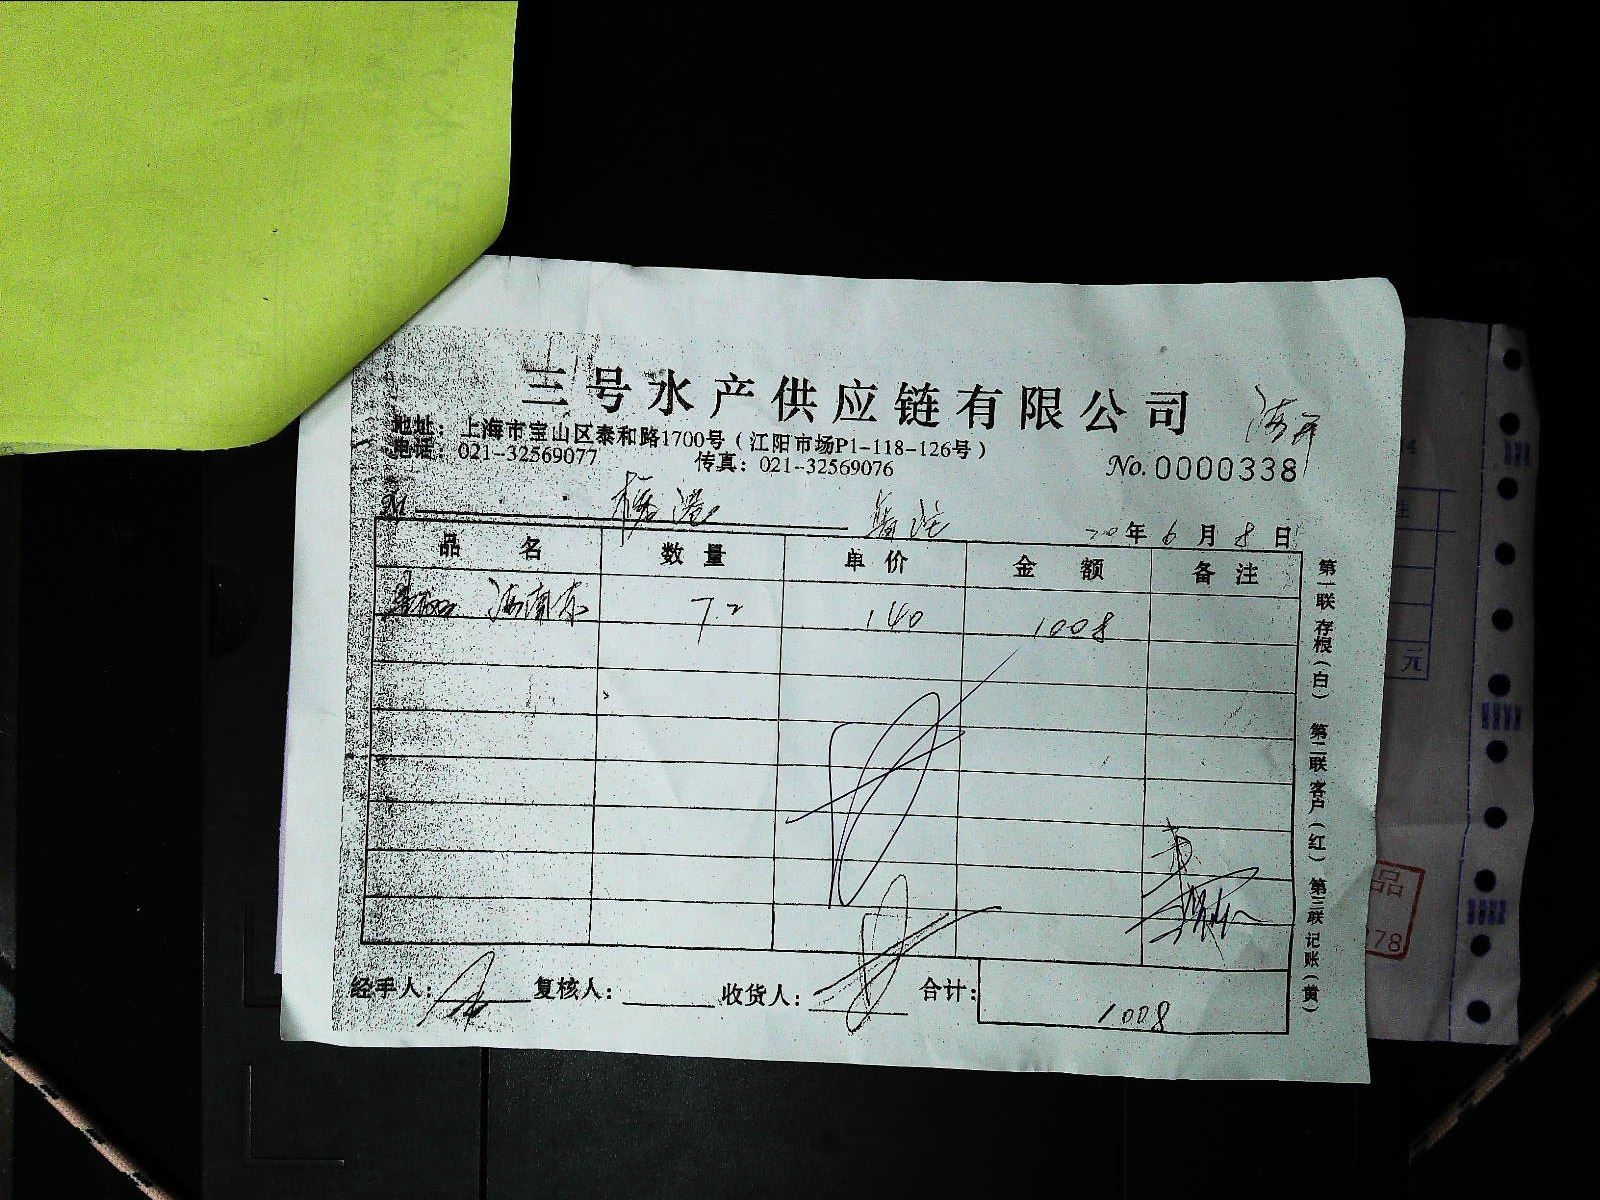 三号水产供应链有限公司
地址：上海市宝山区泰和路1700号（江阳市场P1-118-126号）
电话：021-32569077 传真：021-32569076
No.0000338
M
20年6月8日
品名 数量 单价 金额 备注
7.2 140 1008
经手人： 复核人： 收货人： 合计：1008
第一联 存根（白） 第二联 客户（红） 第三联 记账（黄）
元
品
78